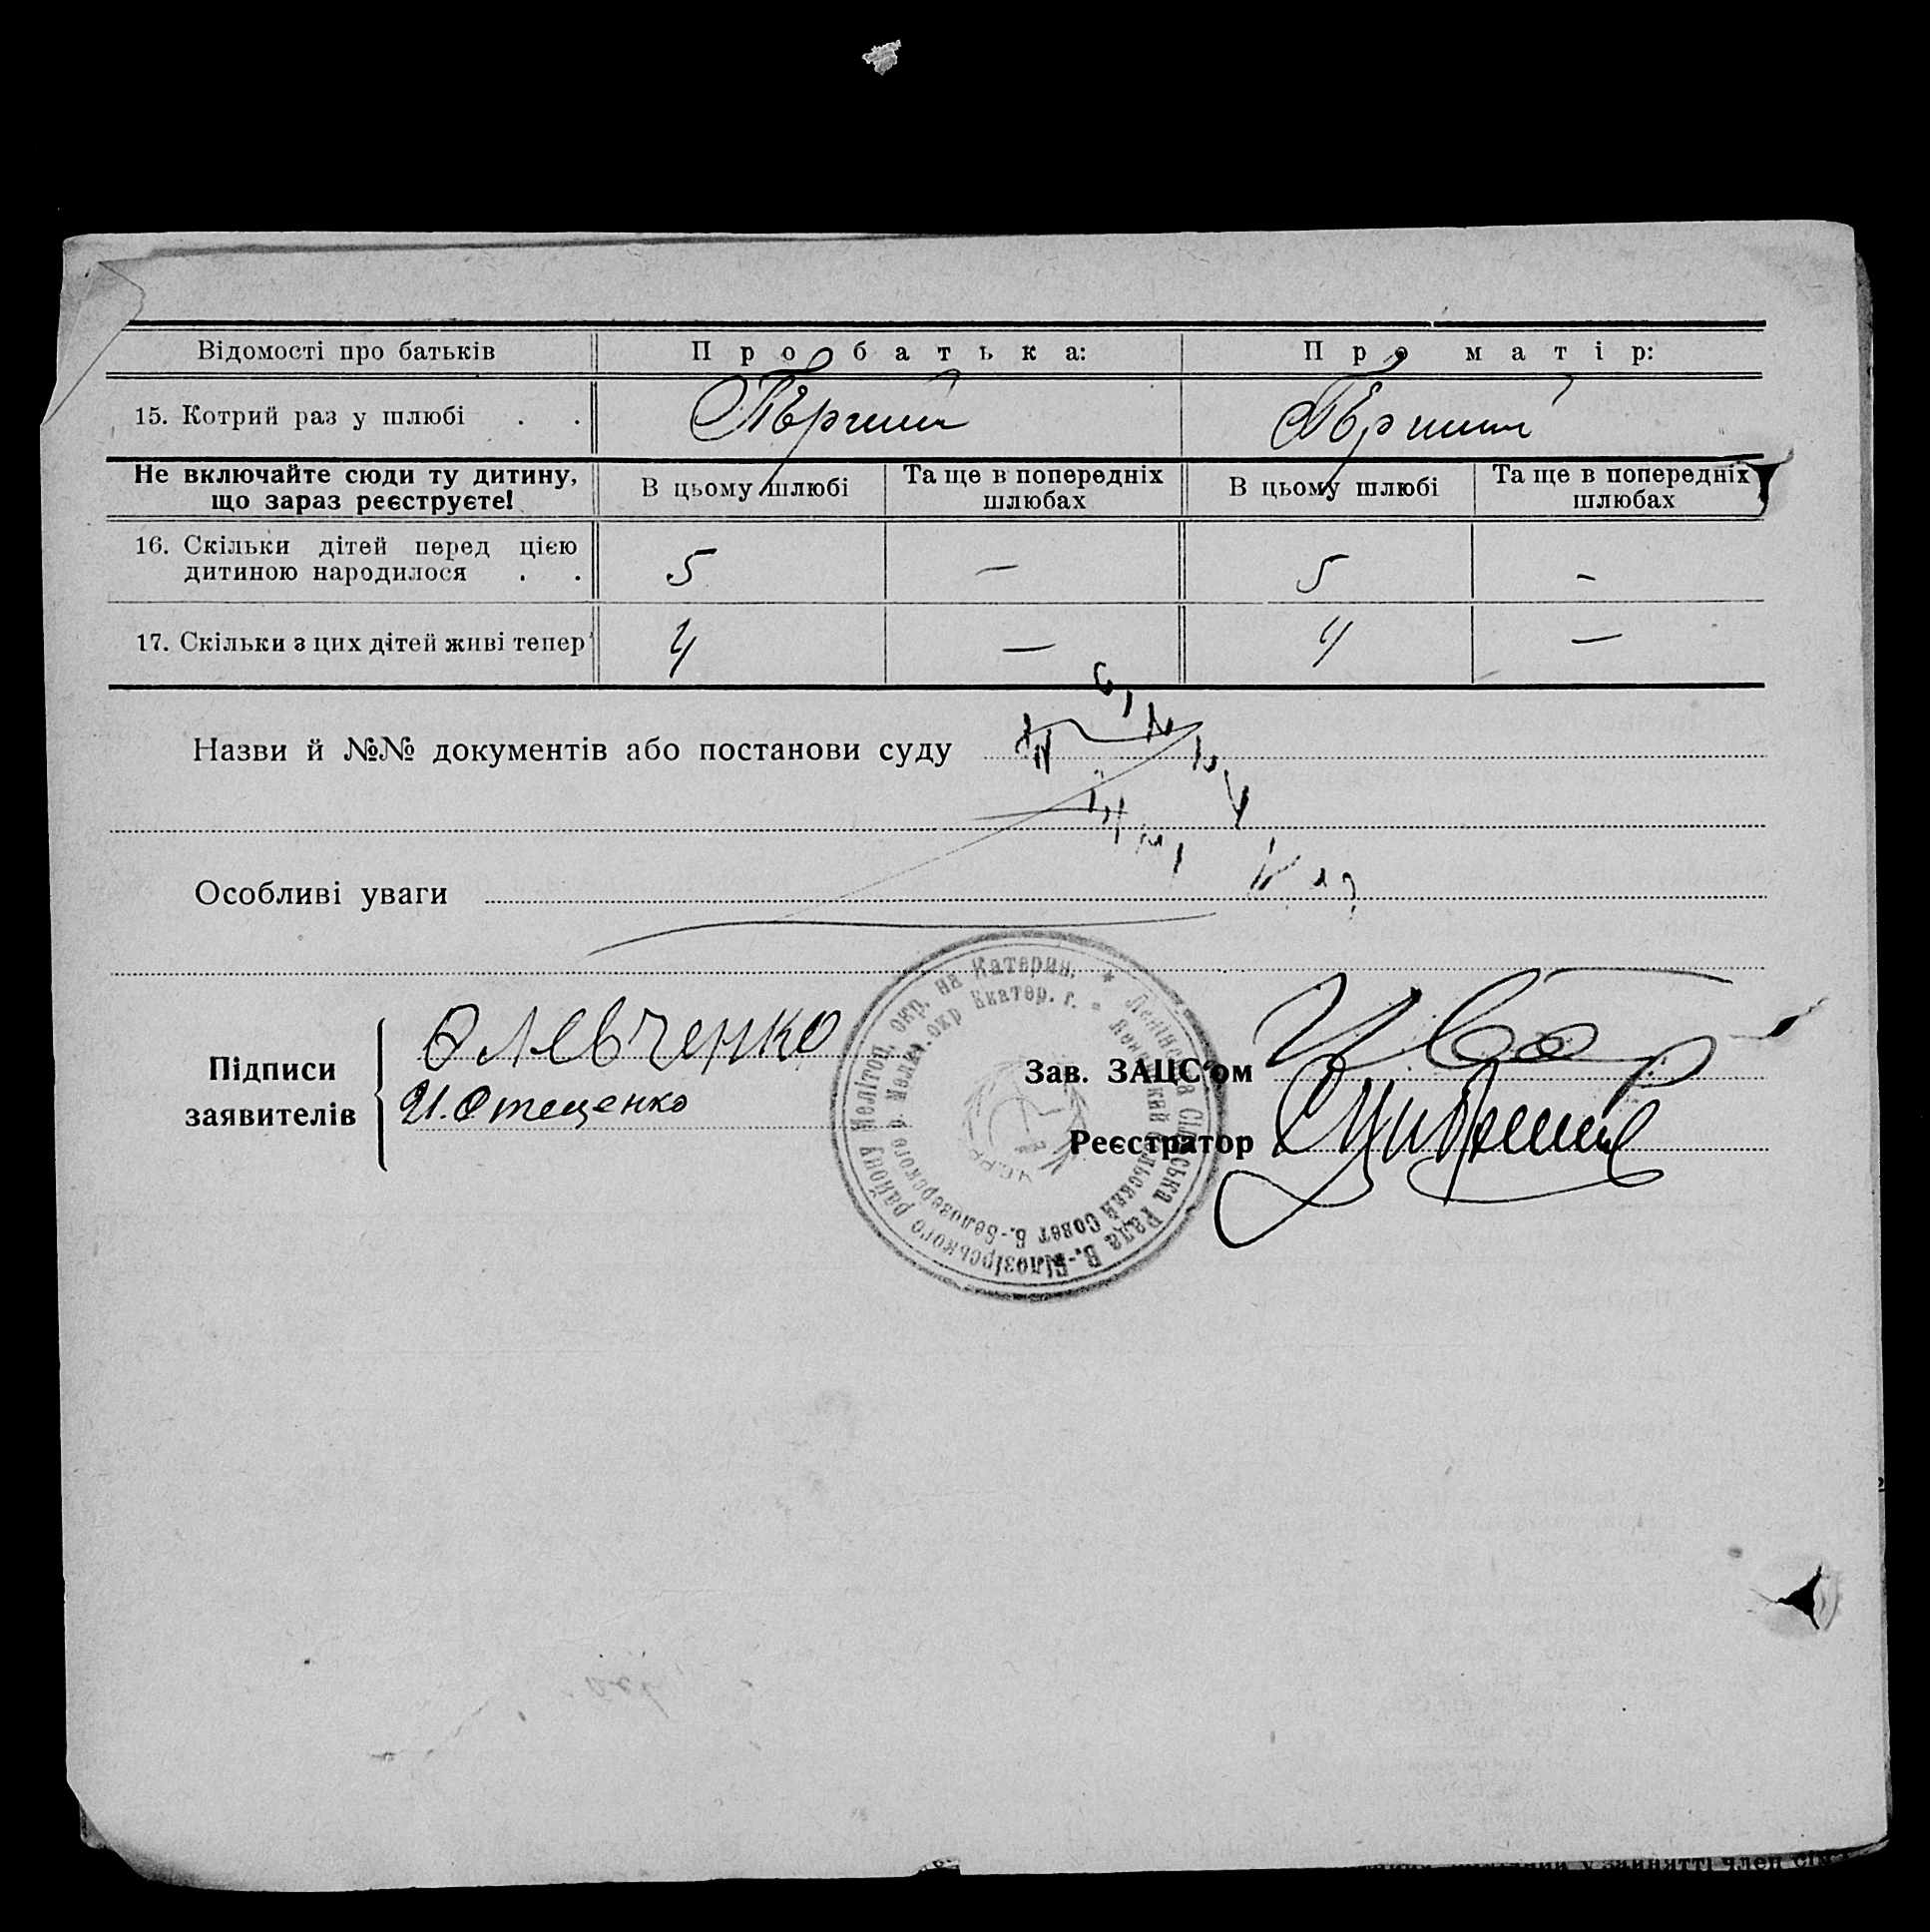 Відомості про батьків Про батька: Про матір:
15. Котрий раз у шлюбі . . Пѣрший Пѣрший
Не включайте сюди ту дитину, що зараз реєструєте!
В цьому шлюбі Та ще в попередніх шлюбах В цьому шлюбі Та ще в попередніх шлюбах
16. Скільки дітей перед цією
дитиною народилося . . 5 — 5 –
17. Скільки з цих дітей живі тепер' 4 — 4 —
Назви й №№ документів або постанови суду
Особливі уваги
Підписи заявителів
О Левченко
И. Отещенко
Зав. ЗАЦС'ом
Реєстратор
★ Ленінська Сільська Рада В.-Білозірського району Мелітоп. окр. на Катерин.
Ленинский Сельский Совет В.-Белозерского р. Мелит. окр Екатер. г.
УСРР